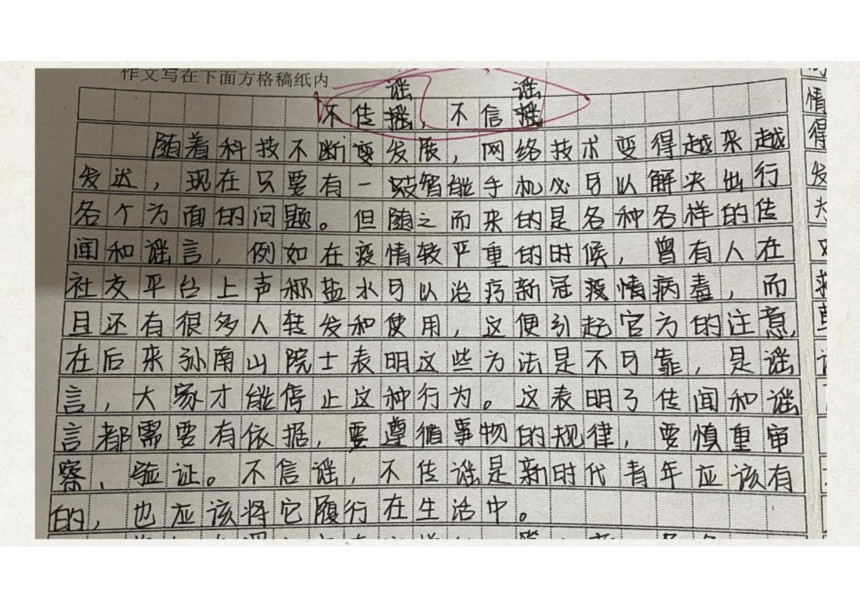 作文写在下面方格稿纸内
谣 谣
不传摇，不信摇
随着科技不断变发展，网络技术变得越来越
发达，现在只要有一部智能手机必可以解决出行
各个方面的问题。但随之而来的是各种各样的传
闻和谣言，例如在疫情较严重的时候，曾有人在
社交平台上声称盐水可以治疗新冠疫情病毒，而
且还有很多人转发和使用，这便引起官方的注意，
在后来孙南山院士表明这些方法是不可靠，是谣
言，大家才能停止这种行为。这表明了传闻和谣
言都需要有依据，要遵循事物的规律，要慎重审
察，验证。不信谣，不传谣是新时代青年应该有
的，也应该将它履行在生活中。
情
得
发